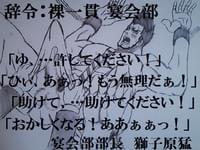 辞令・裸一貫 宴会部
「ゆ、…許してください！」
「ひぃ、あぁっ！もう無理だぁ！」
「助けて、…助けてください！」
「おかしくなる！ああぁぁっ！」
宴会部部長 獅子原猛